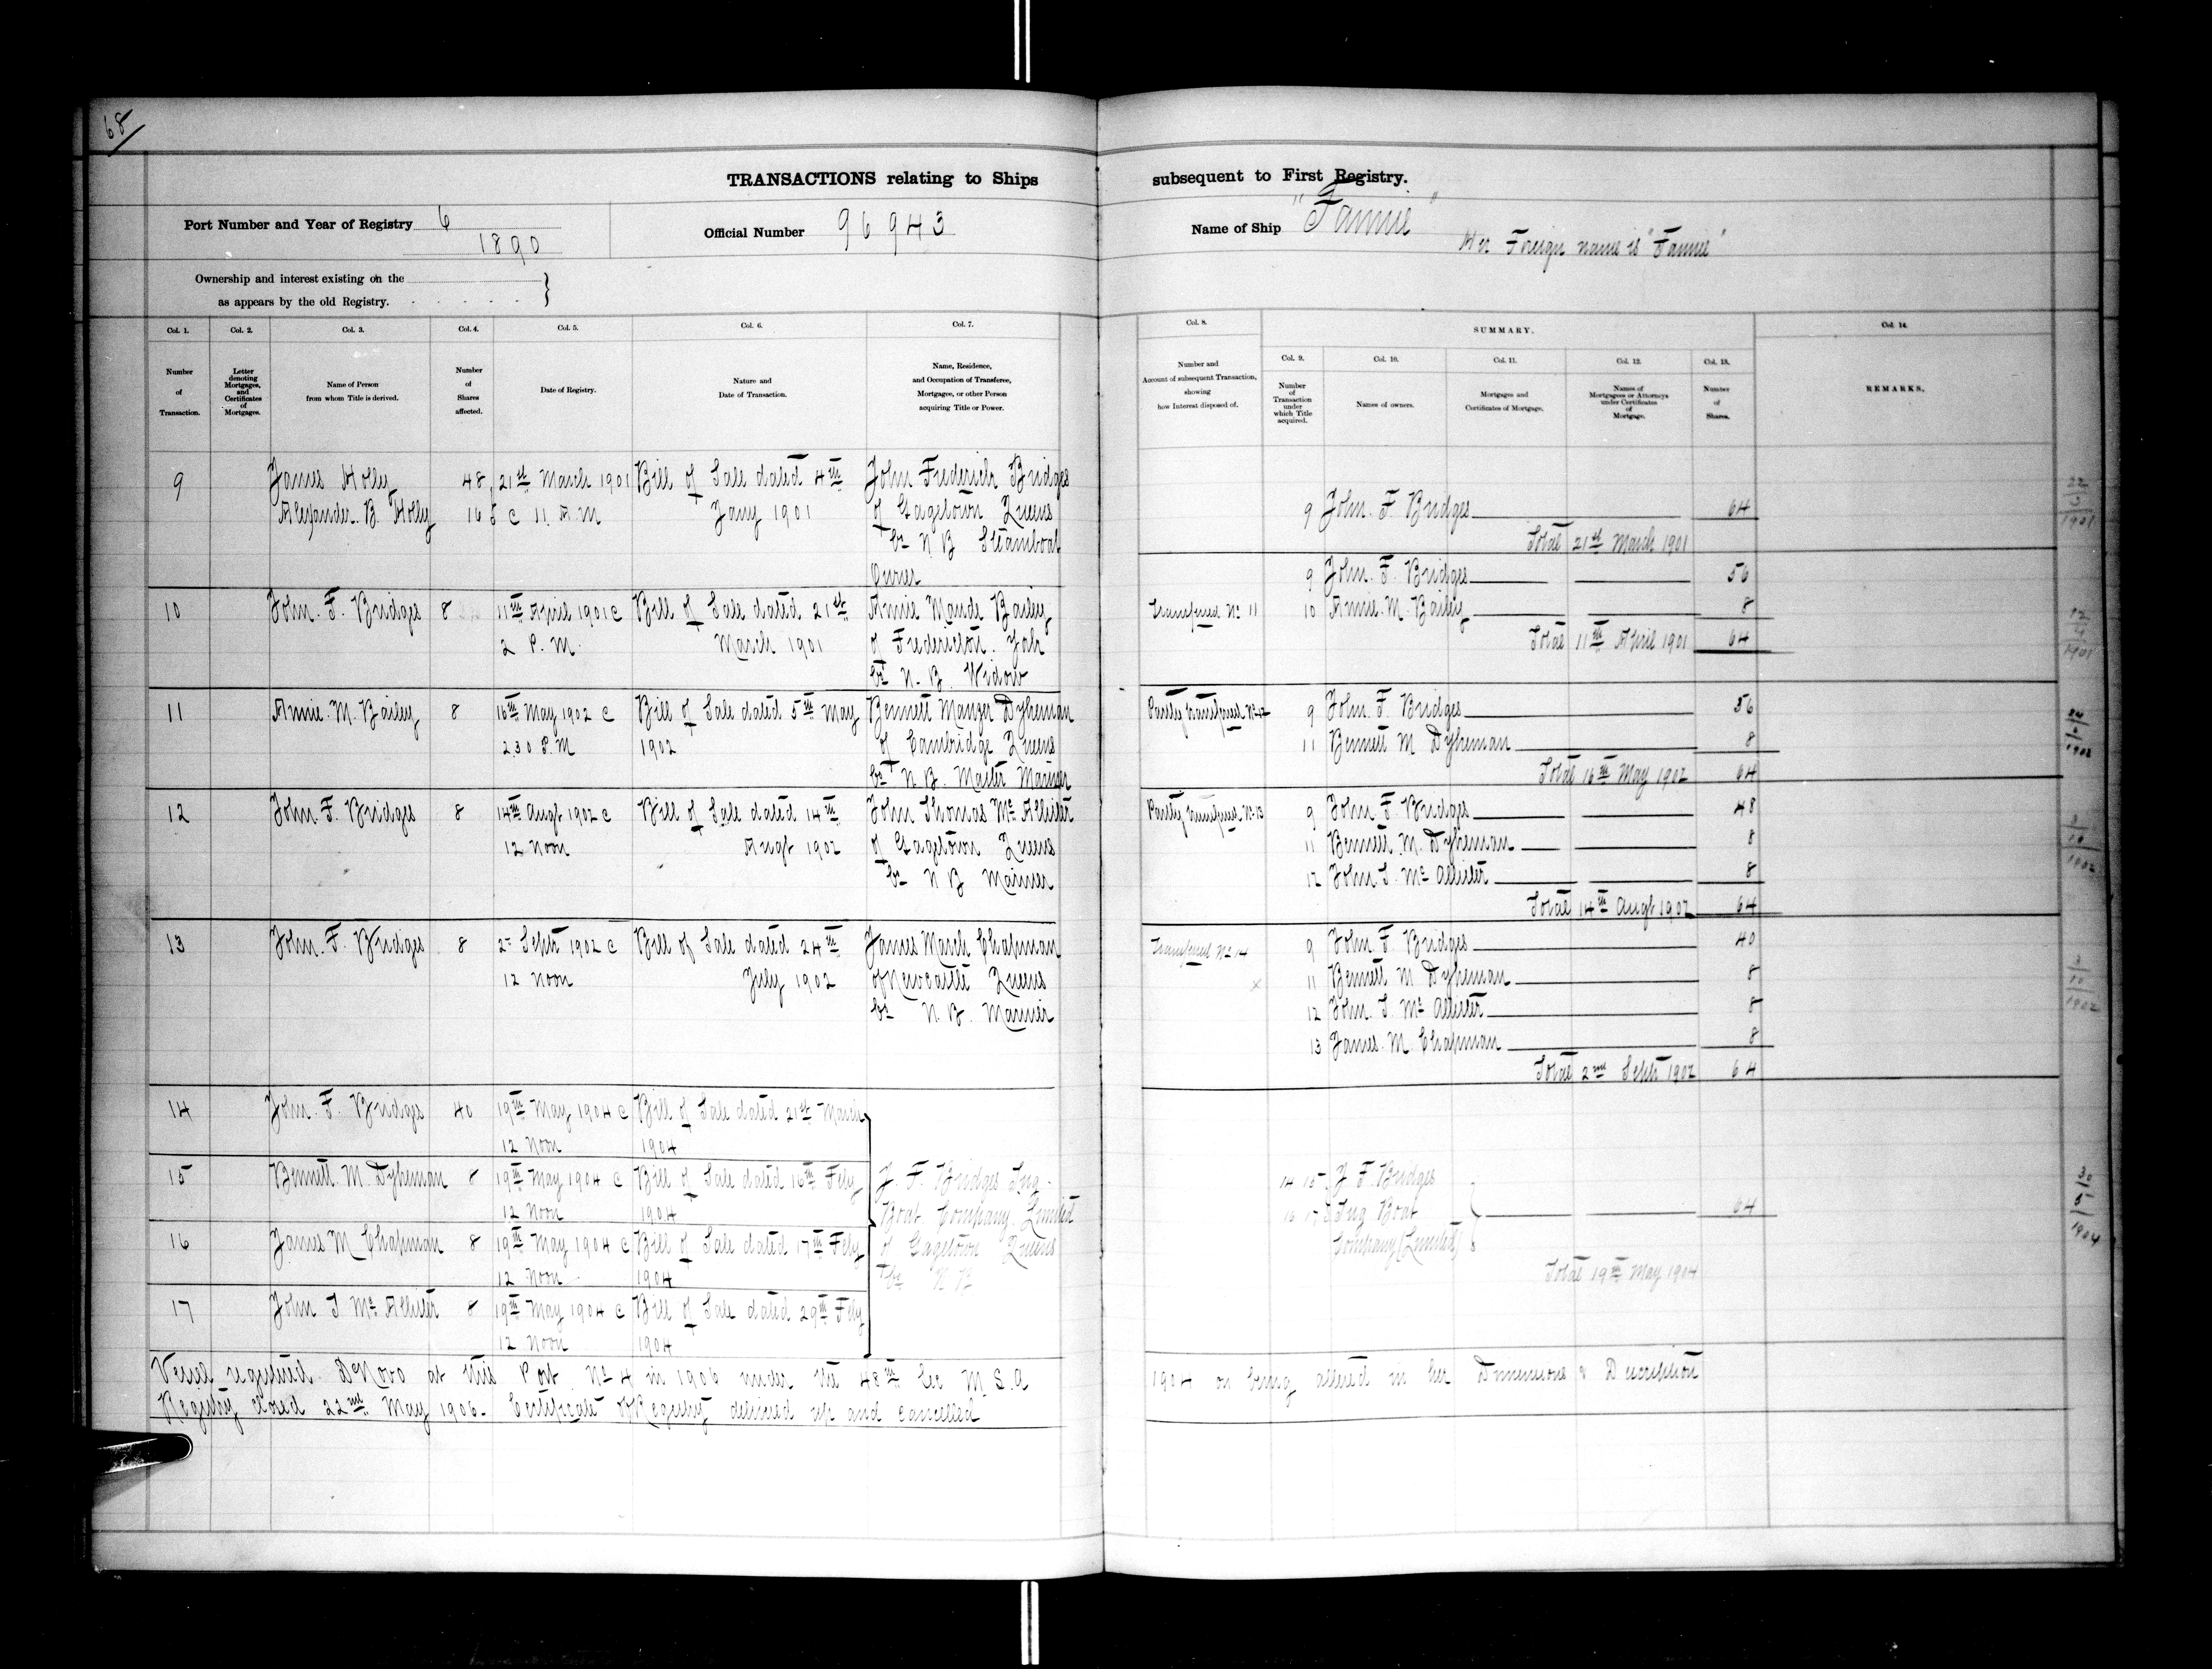 68
TRANSACTIONS relating to Ships subsequent to First Registry.
Port Number and Year of Registry 6
1890
Official Number 96943
Name of Ship "Fannie"
Her Foreign name is "Fannie"
Ownership and interest existing on the
as appears by the old Registry.
Col. 1. Col. 2. Col. 3. Col. 4. Col. 5. Col. 6. Col. 7. Col. 8. SUMMARY. Col. 14.
Col. 9. Col. 10. Col. 11. Col. 12. Col. 13.
Number of Transaction.
Letter denoting Mortgages, and Certificates of Mortgages.
Name of Person from whom Title is derived.
Number of Shares affected.
Date of Registry.
Nature and Date of Transaction.
Name, Residence, and Occupation of Transferee, Mortgagee, or other Person acquiring Title or Power.
Number and Account of subsequent Transaction, showing how Interest disposed of.
Number of Transaction under which Title acquired.
Names of owners.
Mortgages and Certificates of Mortgage.
Names of Mortgagees or Attorneys under Certificates of Mortgage.
Number of Shares.
REMARKS.
9 James Holly 48 21st March 1901 Bill of Sale dated 4th John Frederick Bridges
Alexander B. Holly 16 @ 11 A.M Jany 1901 of Gagetown Queens
Co N B Steamboat
Owner
9 John F Bridges 64
Total 21st March 1901
22/3/1901
10 John F. Bridges 8 11th April 1901 @ Bill of Sale dated 21st Annie Maude Bailey
2 P.M. March 1901 of Fredericton York
Co N. B. Widow
9 John F. Bridges 56
Transferred No 11 10 Annie M. Bailey 8
Total 11th April 1901 64
12/4/1901
11 Annie M. Bailey 8 16th May 1902 @ Bill of Sale dated 5th May Bennett Manzer Dykeman
2.30 P.M 1902 of Cambridge Queens
Co N.B. Master Mariner
Partly transferred No 12 9 John F. Bridges 56
11 Bennett M Dykeman 8
Total 16th May 1902 64
12 John F. Bridges 8 14th Augt 1902 @ Bill of Sale dated 14th John Thomas Mc Allister
12 Noon Augt 1902 of Gagetown Queens
Co N B Mariner
Partly transferred No 13 9 John F. Bridges 48
11 Bennett M. Dykeman 8
12 John T. Mc Allister 8
Total 14th Augt 1902 64
13 John F. Bridges 8 2nd Sept 1902 @ Bill of Sale dated 24th James March Chapman
12 Noon July 1902 of Newcastle Queens
Co N.B. Mariner
Transferred No 14 9 John F. Bridges 40
x 11 Bennett M Dykeman 8
12 John T. Mc Allister 8
13 James M. Chapman 8
Total 2nd Sept 1902 64
14 John F. Bridges 40 19th May 1904 @ Bill of Sale dated 21st March
12 Noon 1904
15 Bennett M. Dykeman 8 19th May 1904 @ Bill of Sale dated 16th Feby
12 Noon 1904
16 James M Chapman 8 19th May 1904 @ Bill of Sale dated 17th Feby
12 Noon 1904
17 John T Mc Allister 8 19th May 1904 @ Bill of Sale dated 29th Feby
12 Noon 1904
J. F. Bridges Tug
Boat Company Limited
of Gagetown Queens
Co N B
14 15 J F Bridges
16 17 Tug Boat 64
Company (Limited)
Total 19th May 1904
Vessel registered DeNovo at this Port No 4 in 1906 under the 48th Sec M.S.A 1904 on being altered in her Dimensions & Description
Registry closed 22nd May 1906. Certificate of Registry delivered up and cancelled